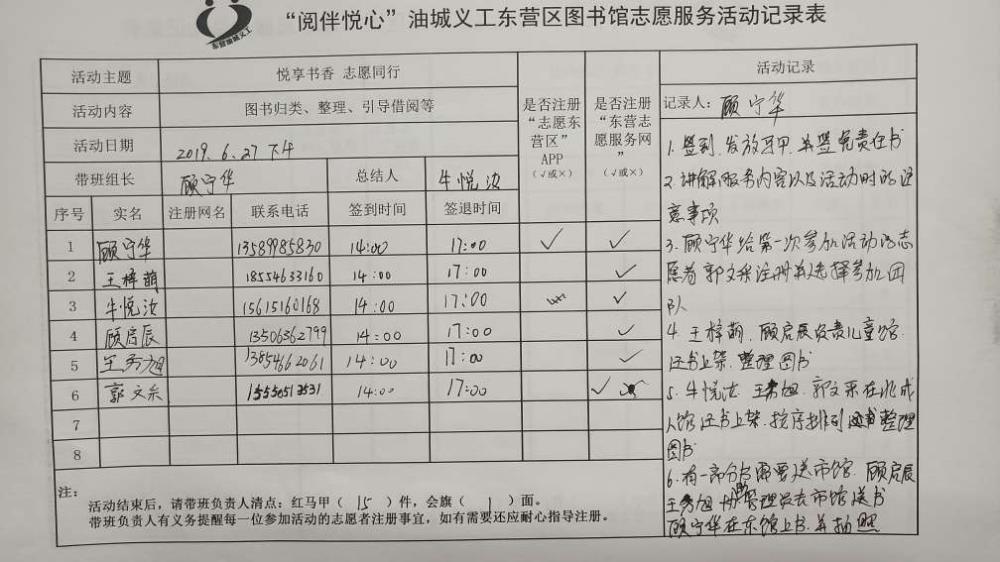 东营油城义工
“阅伴悦心”油城义工东营区图书馆志愿服务活动记录表
活动主题 悦享书香 志愿同行
活动内容 图书归类、整理、引导借阅等
活动日期 2019.6.27 下午
带班组长 顾宁华 总结人 牛悦汝
是否注册“志愿东营区”APP（√或×）
是否注册“东营志愿服务网”（√或×）
序号 实名 注册网名 联系电话 签到时间 签退时间
1 顾宁华 13589985830 14:00 17:00 √ √
2 王梓萌 18554633160 14:00 17:00 √
3 牛悦汝 15615160168 14:00 17:00 √
4 顾启辰 13506362799 14:00 17:00 √
5 王秀旭 13854662061 14:00 17:00 √
6 郭文采 14:00 17:00 √
7
8
注：
活动结束后，请带班负责人清点：红马甲（15）件，会旗（1）面。
带班负责人有义务提醒每一位参加活动的志愿者注册事宜，如有需要还应耐心指导注册。
活动记录
记录人：顾宁华
1.签到.发放马甲.并签免责任书
2.讲解服务内容以及活动时的注
意事项
3.顾宁华给第一次参加活动的志
愿者郭文采注册并选择参加团
队
4.王梓萌.顾启辰负责儿童馆
还书上架.整理图书
5.牛悦汝.王秀旭.郭文采在北成
人馆还书上架.按序排列 整理
图书
6.有一部分书需要送市馆.顾启辰
王秀旭 协助管理员去市馆送书
顾宁华在东馆上书.并拍照